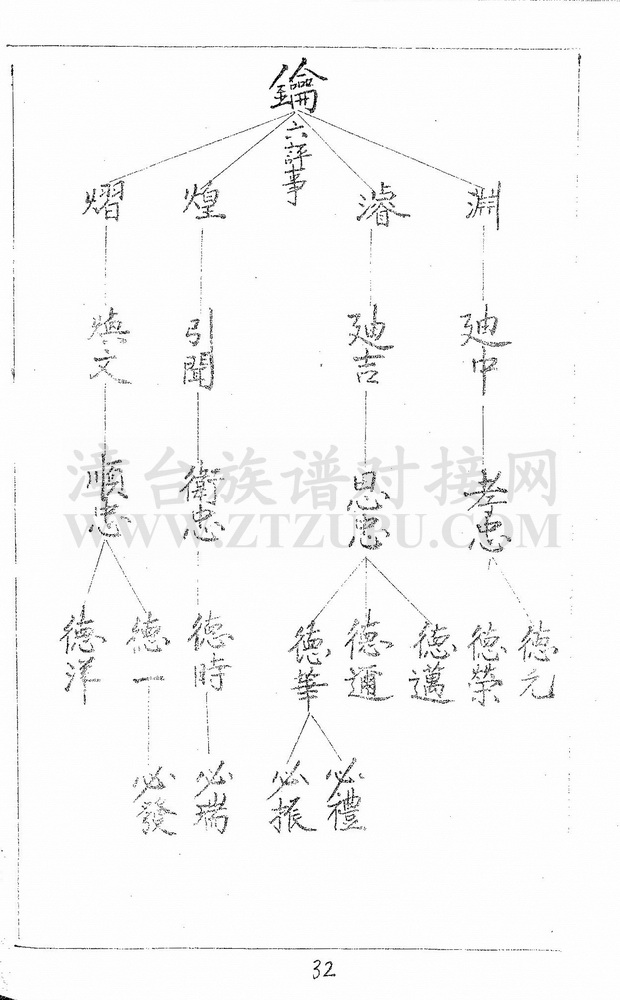 鑰
六評事
淵
濬
煌
熠
廸中
廸吉
引聞
煥文
孝忠
思忠
衛忠
順忠
德元
德榮
德邁
德邇
德華
德時
德一
德洋
必禮
必振
必瑞
必發
漳台族谱对接网
WWW.ZTZUPU.COM
32